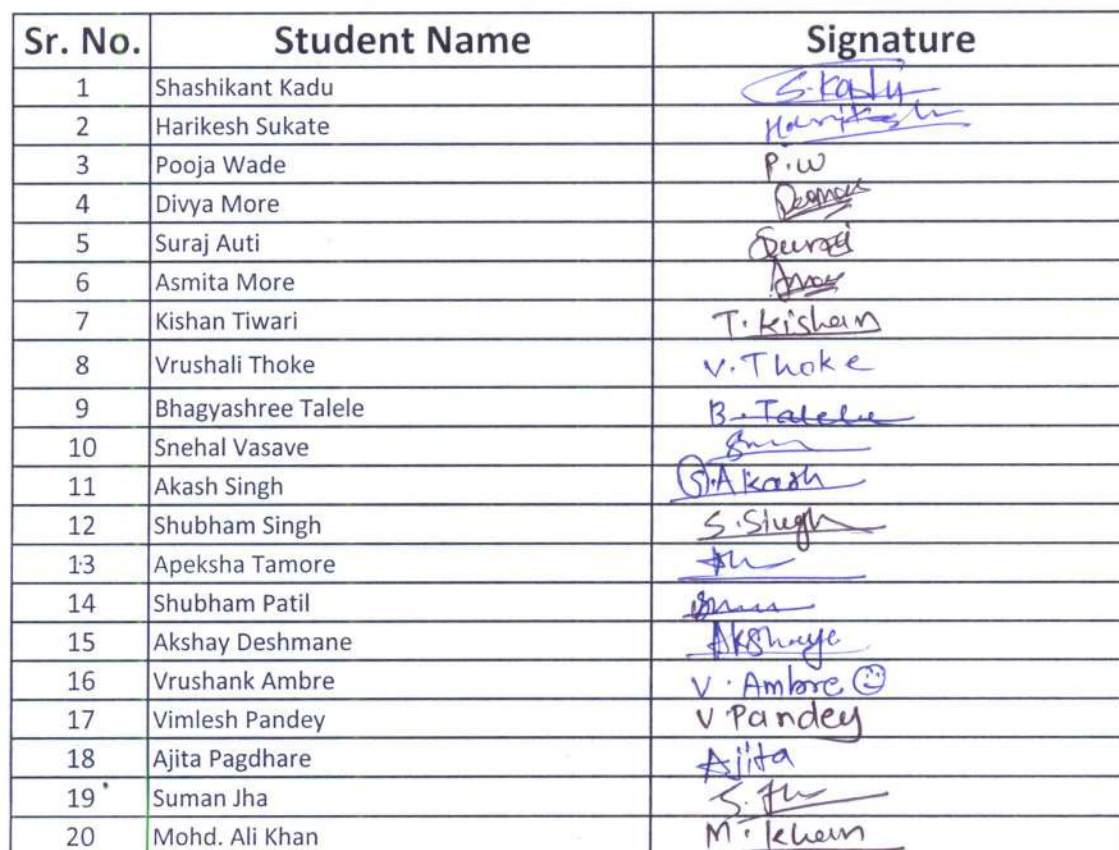 Sr. No. Student Name Signature
1 Shashikant Kadu S. Kadu
2 Harikesh Sukate Harikesh
3 Pooja Wade P.W
4 Divya More
5 Suraj Auti Suraj
6 Asmita More
7 Kishan Tiwari T. Kishan
8 Vrushali Thoke V. Thoke
9 Bhagyashree Talele B. Talele
10 Snehal Vasave
11 Akash Singh S.Akash
12 Shubham Singh S. Singh
13 Apeksha Tamore
14 Shubham Patil
15 Akshay Deshmane Akshaye
16 Vrushank Ambre V. Ambre ☺
17 Vimlesh Pandey V Pandey
18 Ajita Pagdhare Ajita
19 Suman Jha S. Jha
20 Mohd. Ali Khan M. Khan